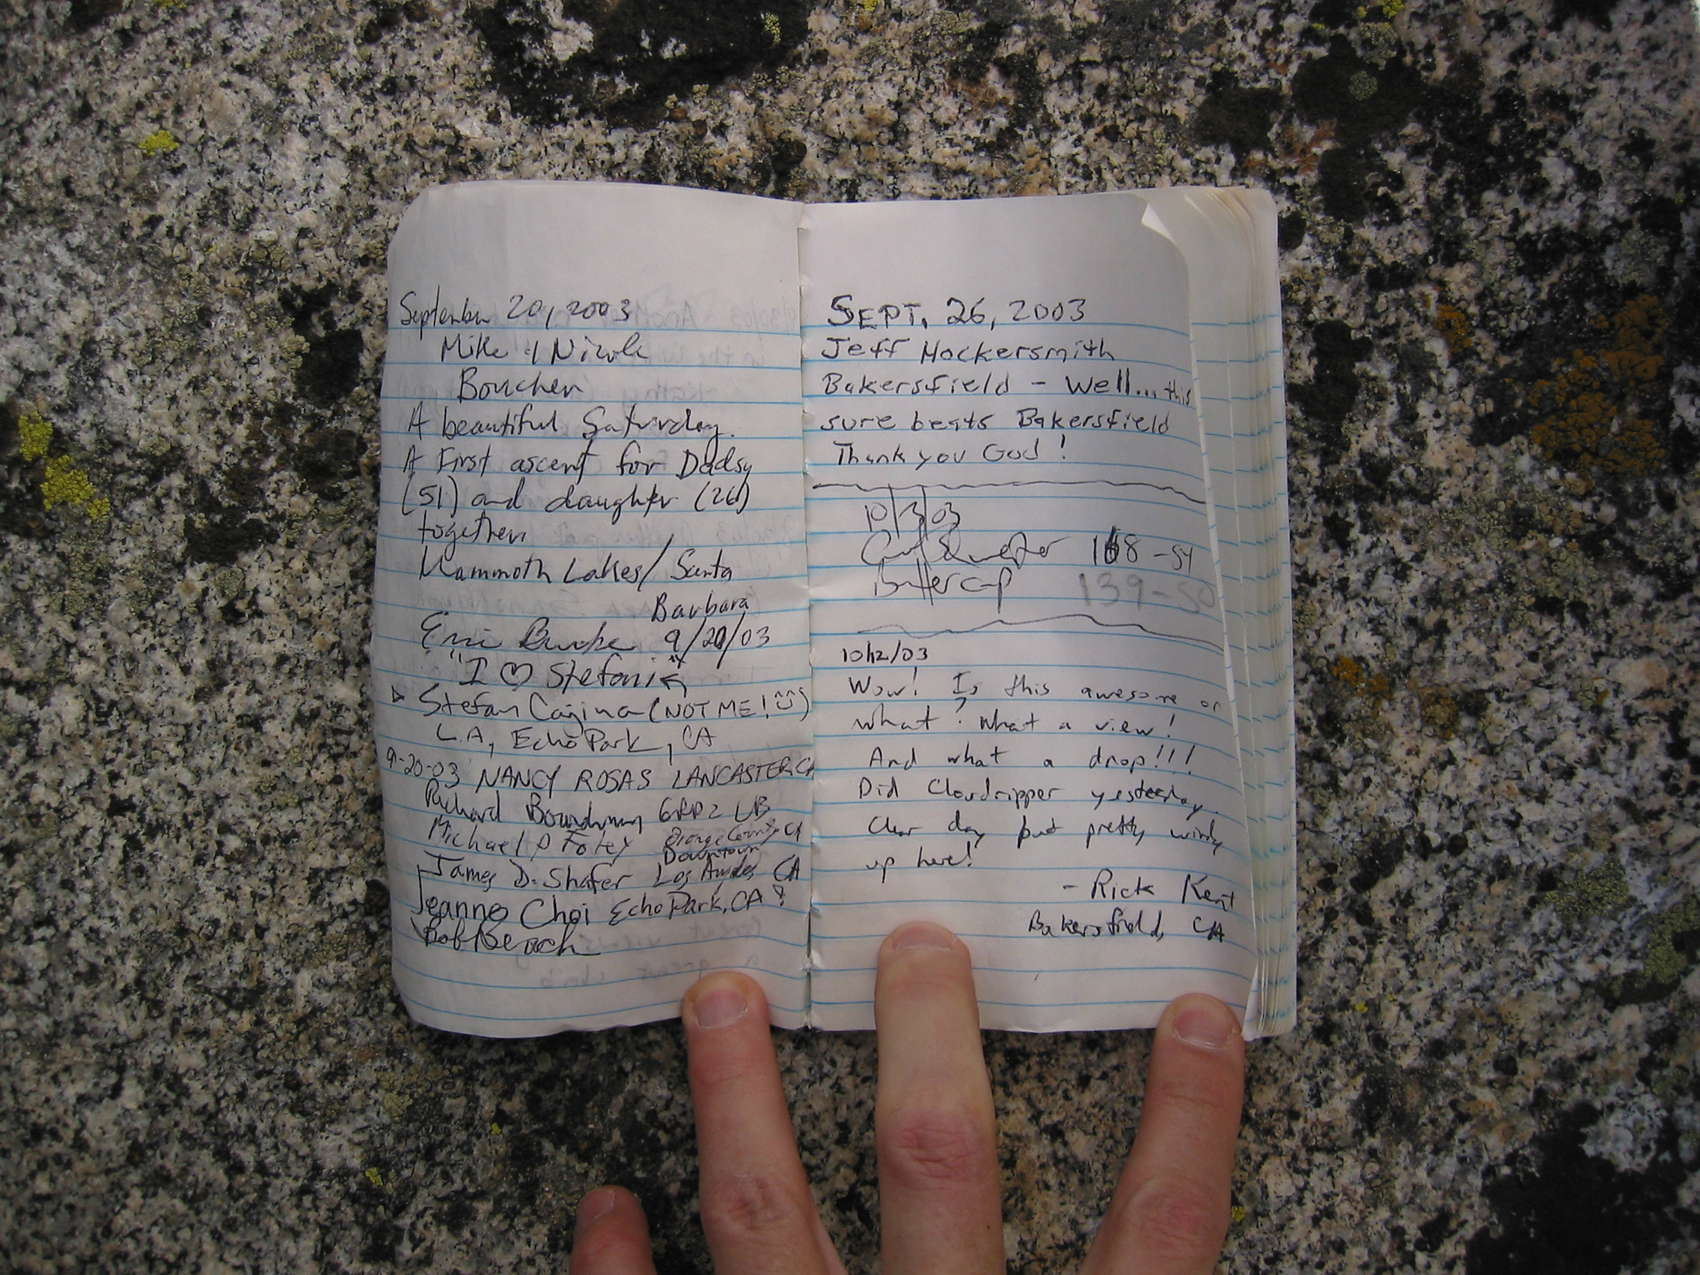 September 20, 2003
Mike & Nicole
Boucher
A beautiful Saturday.
A First ascent for Dadsy
(51) and daughter (26)
together
Mammoth Lakes/Santa
Barbara
Eric Burke 9/20/03
"I ♡ Stefani"
Stefan Cajina (NOT ME!)
L.A, Echo Park, CA
9-20-03 NANCY ROSAS LANCASTER, CA
Richard Boundman GRP2 LB
Michael P Foley Orange County, CA
James D. Shafer Downtown Los Angeles CA
Jeanne Choi Echo Park, CA
Bob Beach
SEPT. 26, 2003
Jeff Hockersmith
Bakersfield - Well... this
sure beats Bakersfield
Thank you God!
10/3/03
168-54
Buttercup 139-50
10/12/03
Wow! Is this awesome or
what? What a view!
And what a drop!!!
Did Cloudripper yesterday
Clear day but pretty windy
up here!
- Rick Kent
Bakersfield, CA